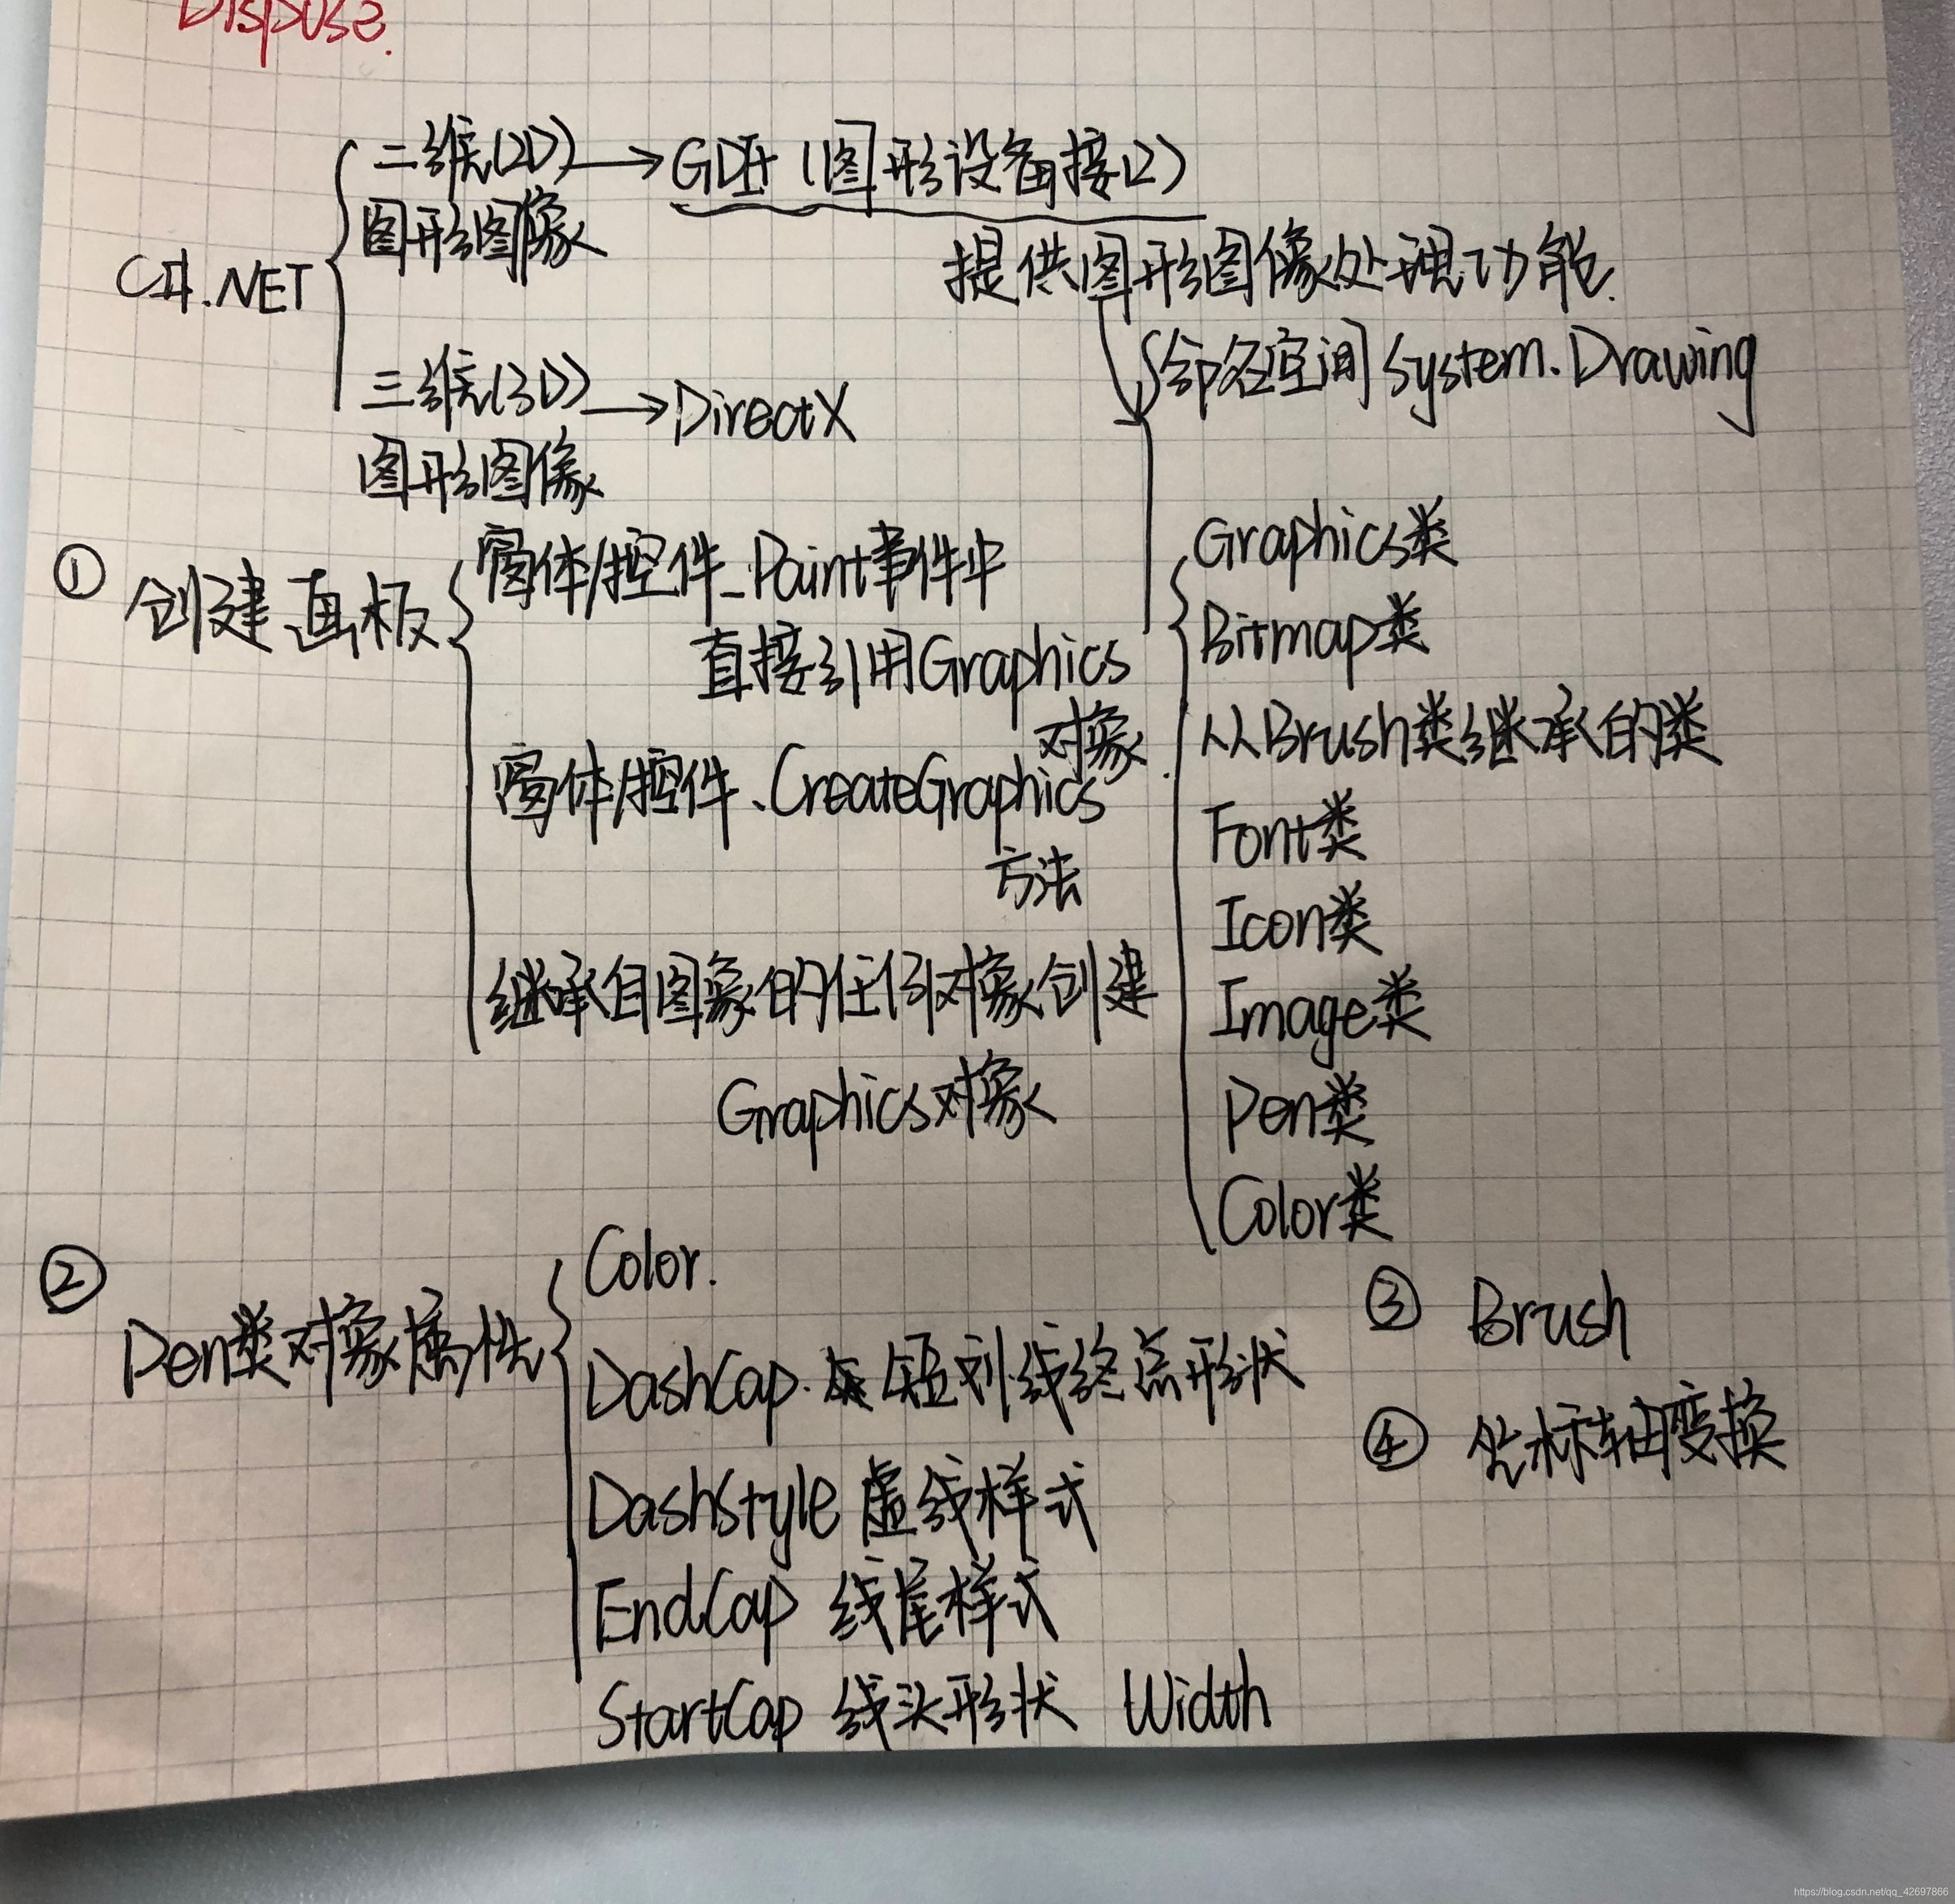 Dispose.
C#.NET
二维(2D)
图形图像
→GDI+(图形设备接口)
提供图形图像处理功能.
命名空间System.Drawing
三维(3D)
图形图像
→DirectX
① 创建画板
窗体/控件_Paint事件中
直接引用Graphics
对象.
窗体/控件.CreateGraphics
方法
继承自图象的任何对象创建
Graphics对象
Graphics类
Bitmap类
从Brush类继承的类
Font类
Icon类
Image类
Pen类
Color类
② Pen类对象属性
Color.
DashCap.短划线终点形状
DashStyle 虚线样式
EndCap 线尾样式
StartCap 线头形状 Width
③ Brush
④ 坐标轴变换
https://blog.csdn.net/qq_42697866